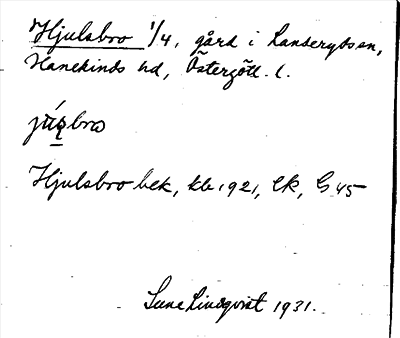 Hjulsbro 1/4, gård i Landeryds sn,
Hanekinds hd, Östergötl. l.
Hjulsbro bek, kb 1921, Ek, G 45
Sune Lindqvist 1931.